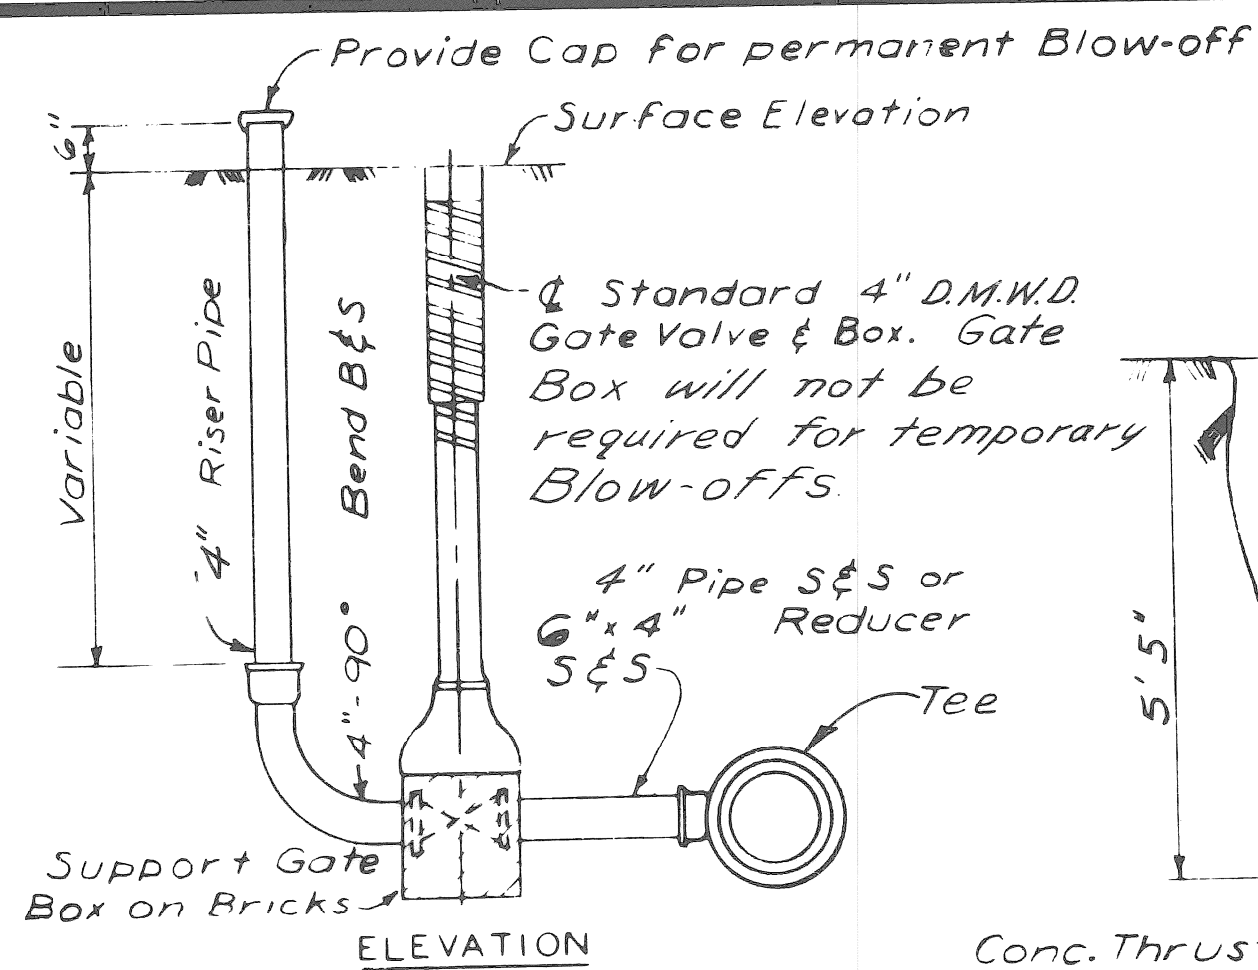 Provide Cap for permanent Blow-off
Surface Elevation
6"
Variable
4" Riser Pipe
4"-90° Bend B&S
℄ Standard 4" D.M.W.D.
Gate Valve & Box. Gate
Box will not be
required for temporary
Blow-offs.
4" Pipe S&S or
6"x4" Reducer
S&S
Tee
5'5"
Support Gate
Box on Bricks
ELEVATION
Conc. Thrus